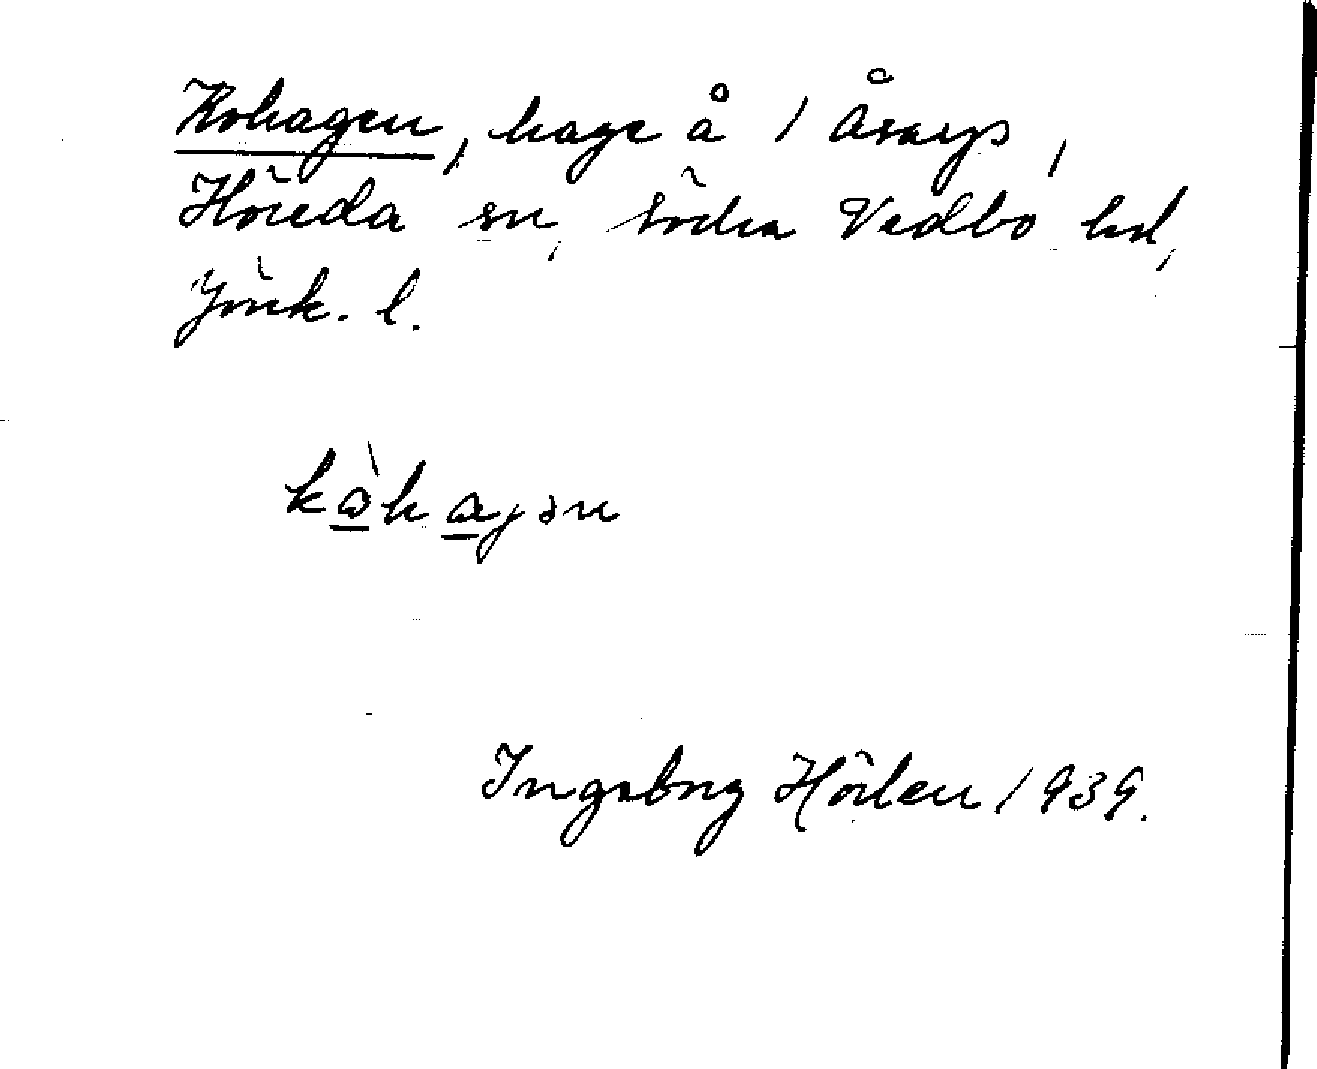 Kohagen, hage å / Åsarp,
Höreda sn, Södra Vedbo hd,
Jönk. l.
kòhagən
Ingeborg Hörlen 1939.